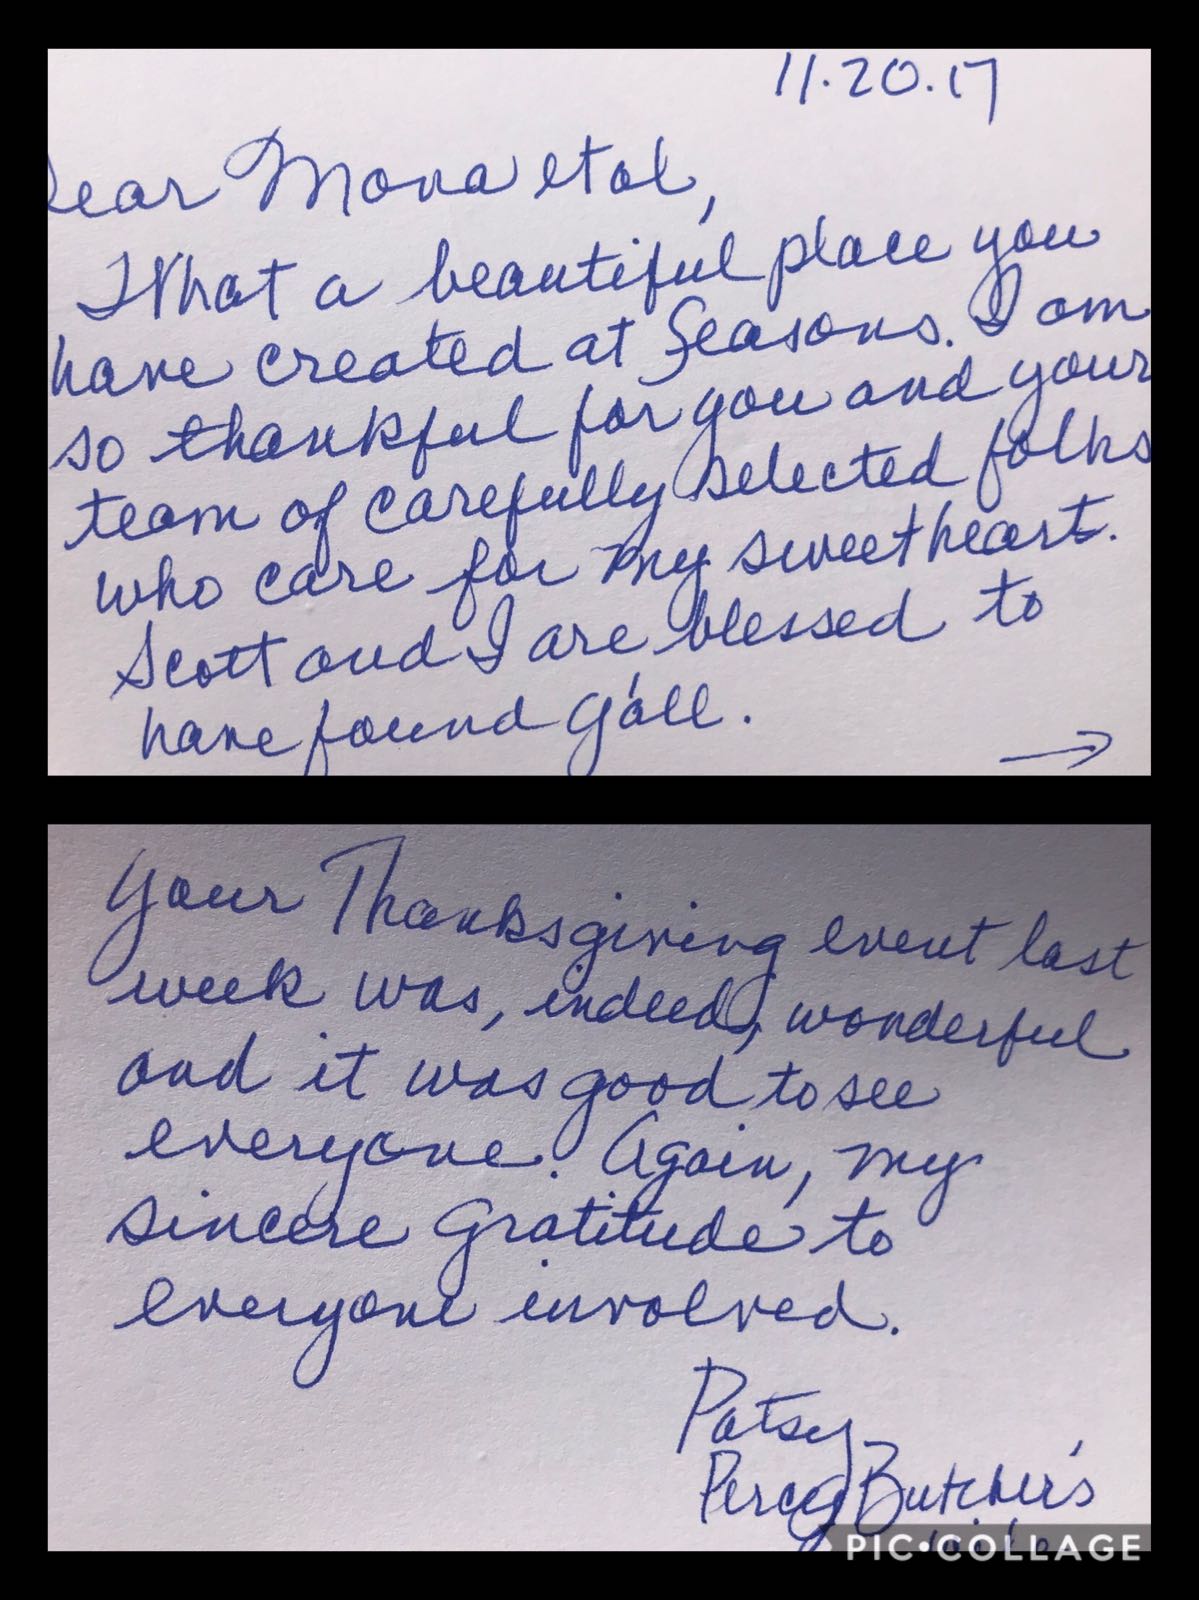 11.20.17
Dear Mona et al,
What a beautiful place you
have created at Seasons. I am
so thankful for you and your
team of carefully selected folks
who care for my sweetheart.
Scott and I are blessed to
have found y'all.
→
Your Thanksgiving event last
week was, indeed, wonderful
and it was good to see
everyone. Again, my
sincere gratitude to
everyone involved.
Patsy
Percy Butcher's
PIC•COLLAGE